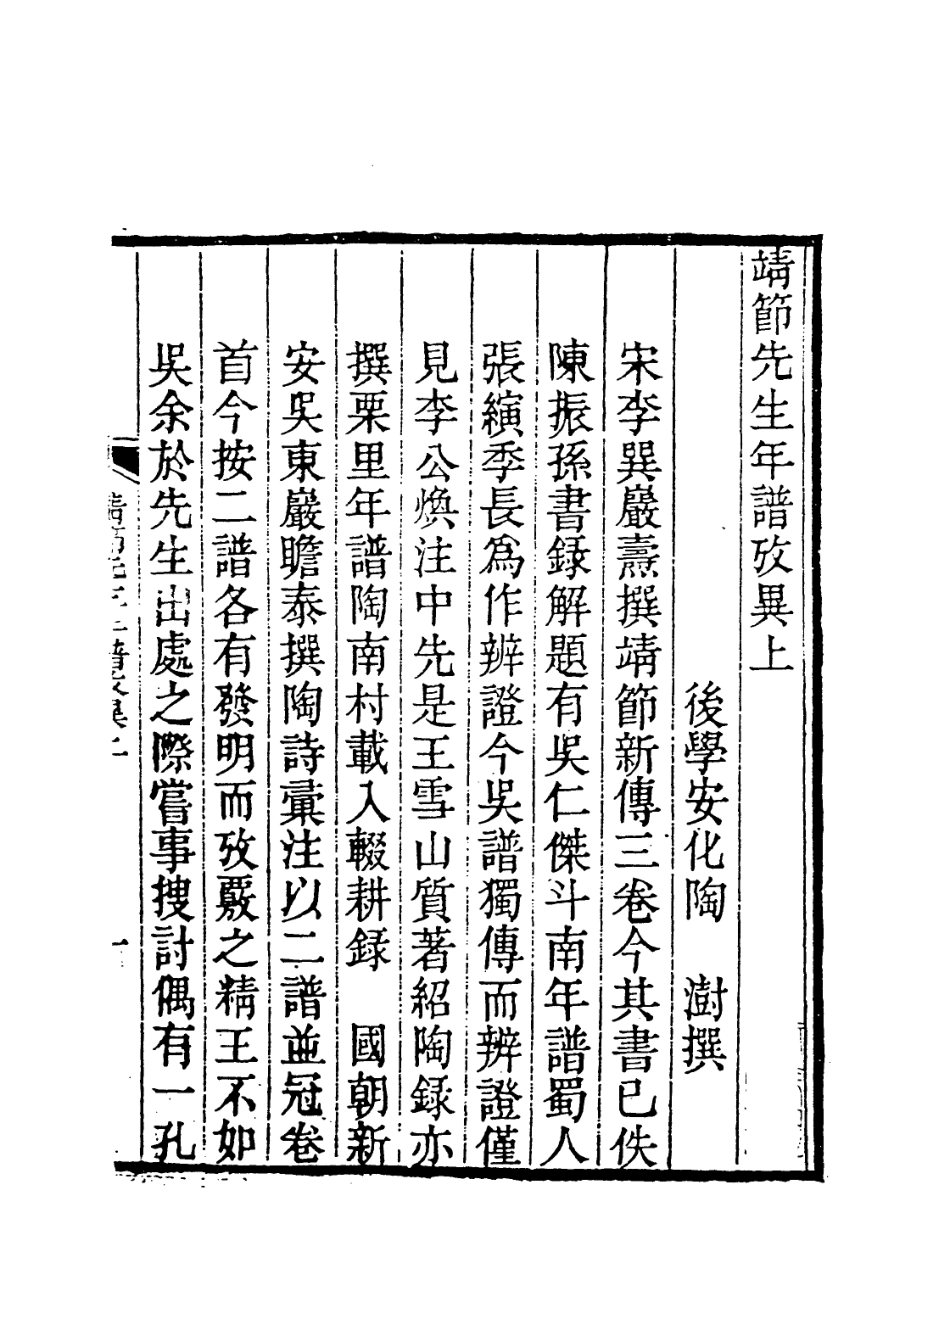 靖節先生年譜攷異上
後學安化陶　澍撰
宋李巽巖燾撰靖節新傳三卷今其書已佚
陳振孫書録解題有吳仁傑斗南年譜蜀人
張縯季長爲作辨證今吳譜獨傳而辨證僅
見李公煥注中先是王雪山質著紹陶録亦
撰栗里年譜陶南村載入輟耕録　國朝新
安吳東巖瞻泰撰陶詩彙注以二譜並冠卷
首今按二譜各有發明而攷覈之精王不如
吳余於先生出處之際嘗事搜討偶有一孔